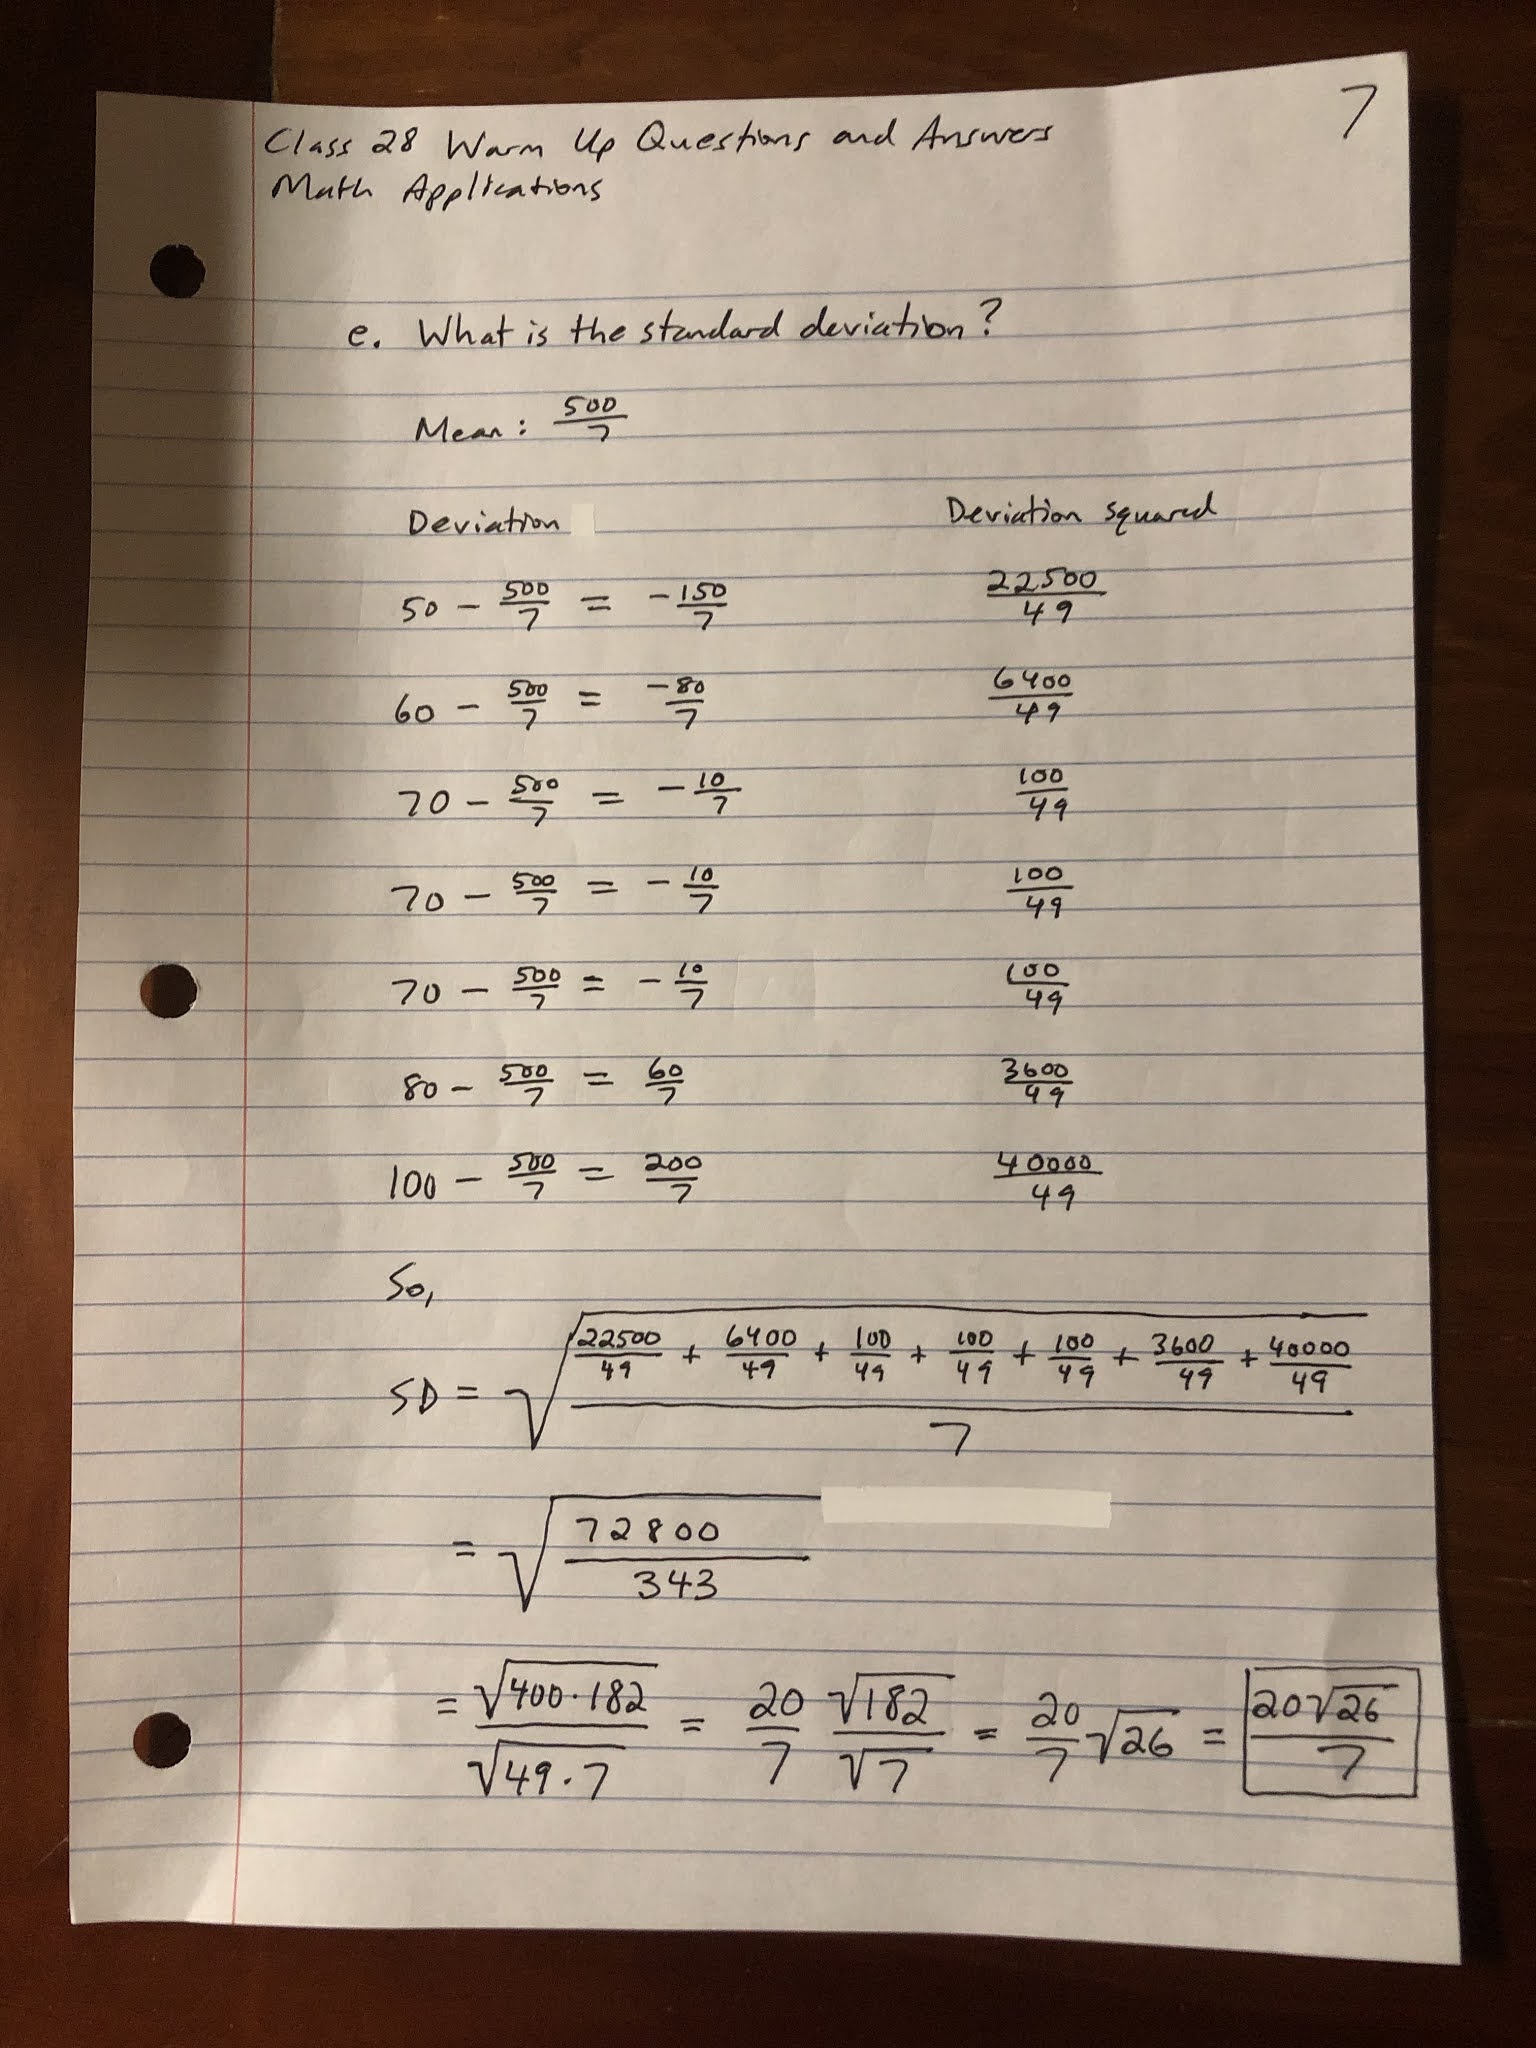 7
Class 28 Warm Up Questions and Answers
Math Applications
e. What is the standard deviation?
Mean: 500/7
Deviation Deviation squared
50 - 500/7 = -150/7 22500/49
60 - 500/7 = -80/7 6400/49
70 - 500/7 = -10/7 100/49
70 - 500/7 = -10/7 100/49
70 - 500/7 = -10/7 100/49
80 - 500/7 = 60/7 3600/49
100 - 500/7 = 200/7 40000/49
So,
SD = √((22500/49 + 6400/49 + 100/49 + 100/49 + 100/49 + 3600/49 + 40000/49)/7)
= √(72800/343)
= √(400·182)/√(49·7) = 20/7 √182/√7 = 20/7 √26 = 20√26/7